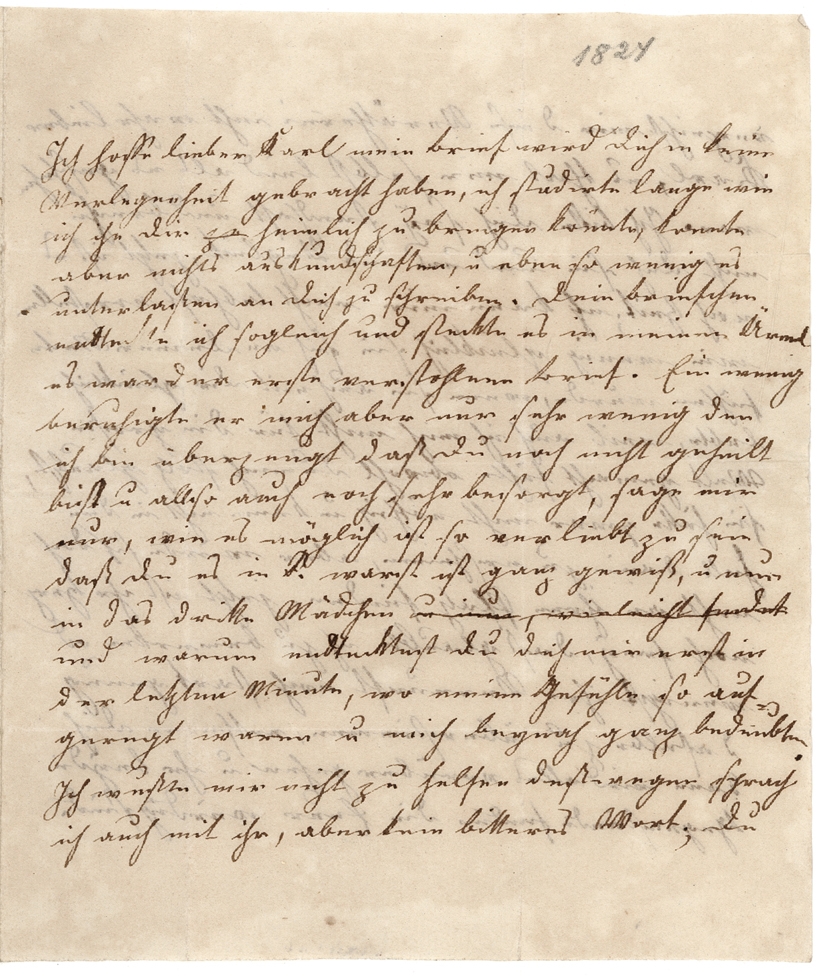 1824
Ich hoffe lieber Karl mein brief wird dich in keine
Verlegenheit gebracht haben, ich studirte lange wie
ich ihn dir zu heimlich zu bringen könnte, konnte
aber nichts auskundschaften, u eben so wenig es
unterlassen an dich zu schreiben. Dein briefchen
ich sogleich und steckte es in meinen Ärmel
es war der erste verstohlene brief. Ein wenig
beruhigte er mich aber nur sehr wenig den
ich bin überzeugt daß du noch nicht geheilt
bist u allso auch noch sehr besorgt, sage mir
nur, wie es möglich ist so verliebt zu sein
daß du es in K. warst ist ganz gewiß, u nun
in das dritte Mädchen u nun, vieleicht findet
und warum endtecktest du dich mir erst in
der letzten Minute, wo meine Gefühle so auf=
geregt waren u mich beynah ganz
Ich wußte mir nicht zu helfen deßwegen sprach
ich auch mit ihr, aber kein bitteres Wort; du